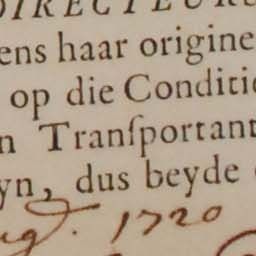 DIRECTEUR
ens haar origine
op die Conditi
n Tranſportant
yn, dus beyde
ug. 1720